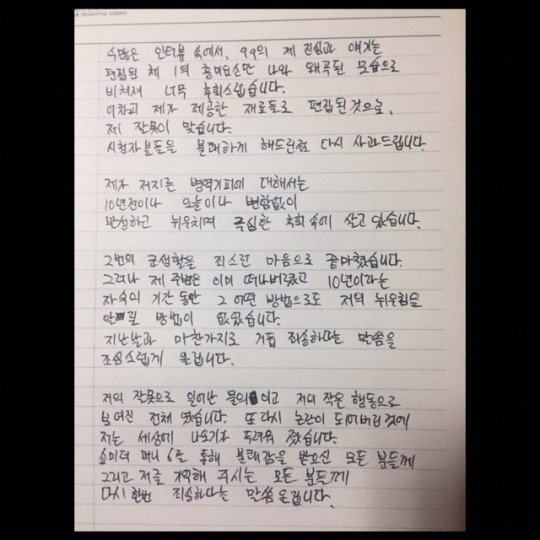 수많은 인터뷰 속에서, 99의 제 진심과 얘기는
편집된 채 1의 흥미요소만 나와 왜곡된 모습으로
비쳐져 너무 후회스럽습니다.
어차피 제가 제공한 재료들로 편집된 것으로,
제 잘못이 맞습니다.
시청자분들을 불쾌하게 해드린점 다시 사과드립니다.
제가 저지른 병역기피에 대해서는
10년전이나 오늘이나 변함없이
반성하고 뉘우치며 극심한 후회 속에 살고 있습니다.
2번의 군생활을 죄스런 마음으로 끝마쳤습니다.
그러나 제 주변은 이미 떠나버렸고 10년이라는
자숙의 기간 동안 그 어떤 방법으로도 저의 뉘우침을
방법이 없었습니다.
지난날과 마찬가지로 거듭 죄송하다는 말씀을
조심스럽게 올립니다.
저의 잘못으로 일어난 물의 이고 저의 작은 행동으로
빚어진 전체 였습니다. 또 다시 논란이 되어버린 것에
저는 세상에 나오기가 두려워 졌습니다.
쇼미더 머니 6을 통해 불쾌감을 받으신 모든 분들께
그리고 저를 기억해 주시는 모든 분들께
다시 한번 죄송하다는 말씀 올립니다.